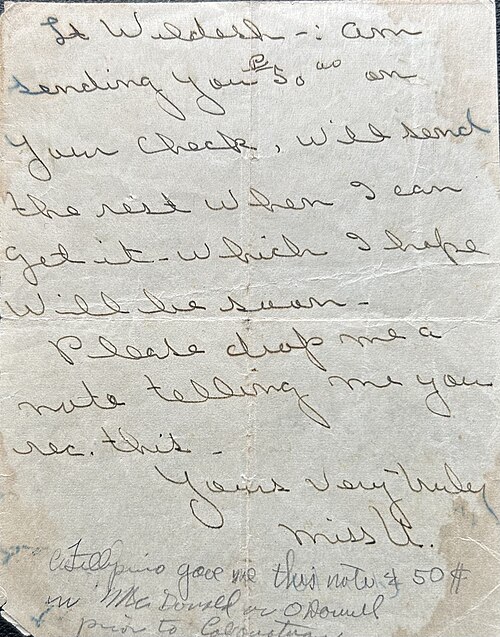 Lt Wildish -: am
sending you ₱50.00 on
your check, will send
the rest when I can
get it - which I hope
will be soon -
Please drop me a
note telling me you
rec. this -
Yours Very Truly
Miss U.
A Fillipino gave me this note & 50$
in McDonell or O'Donnell
prior to